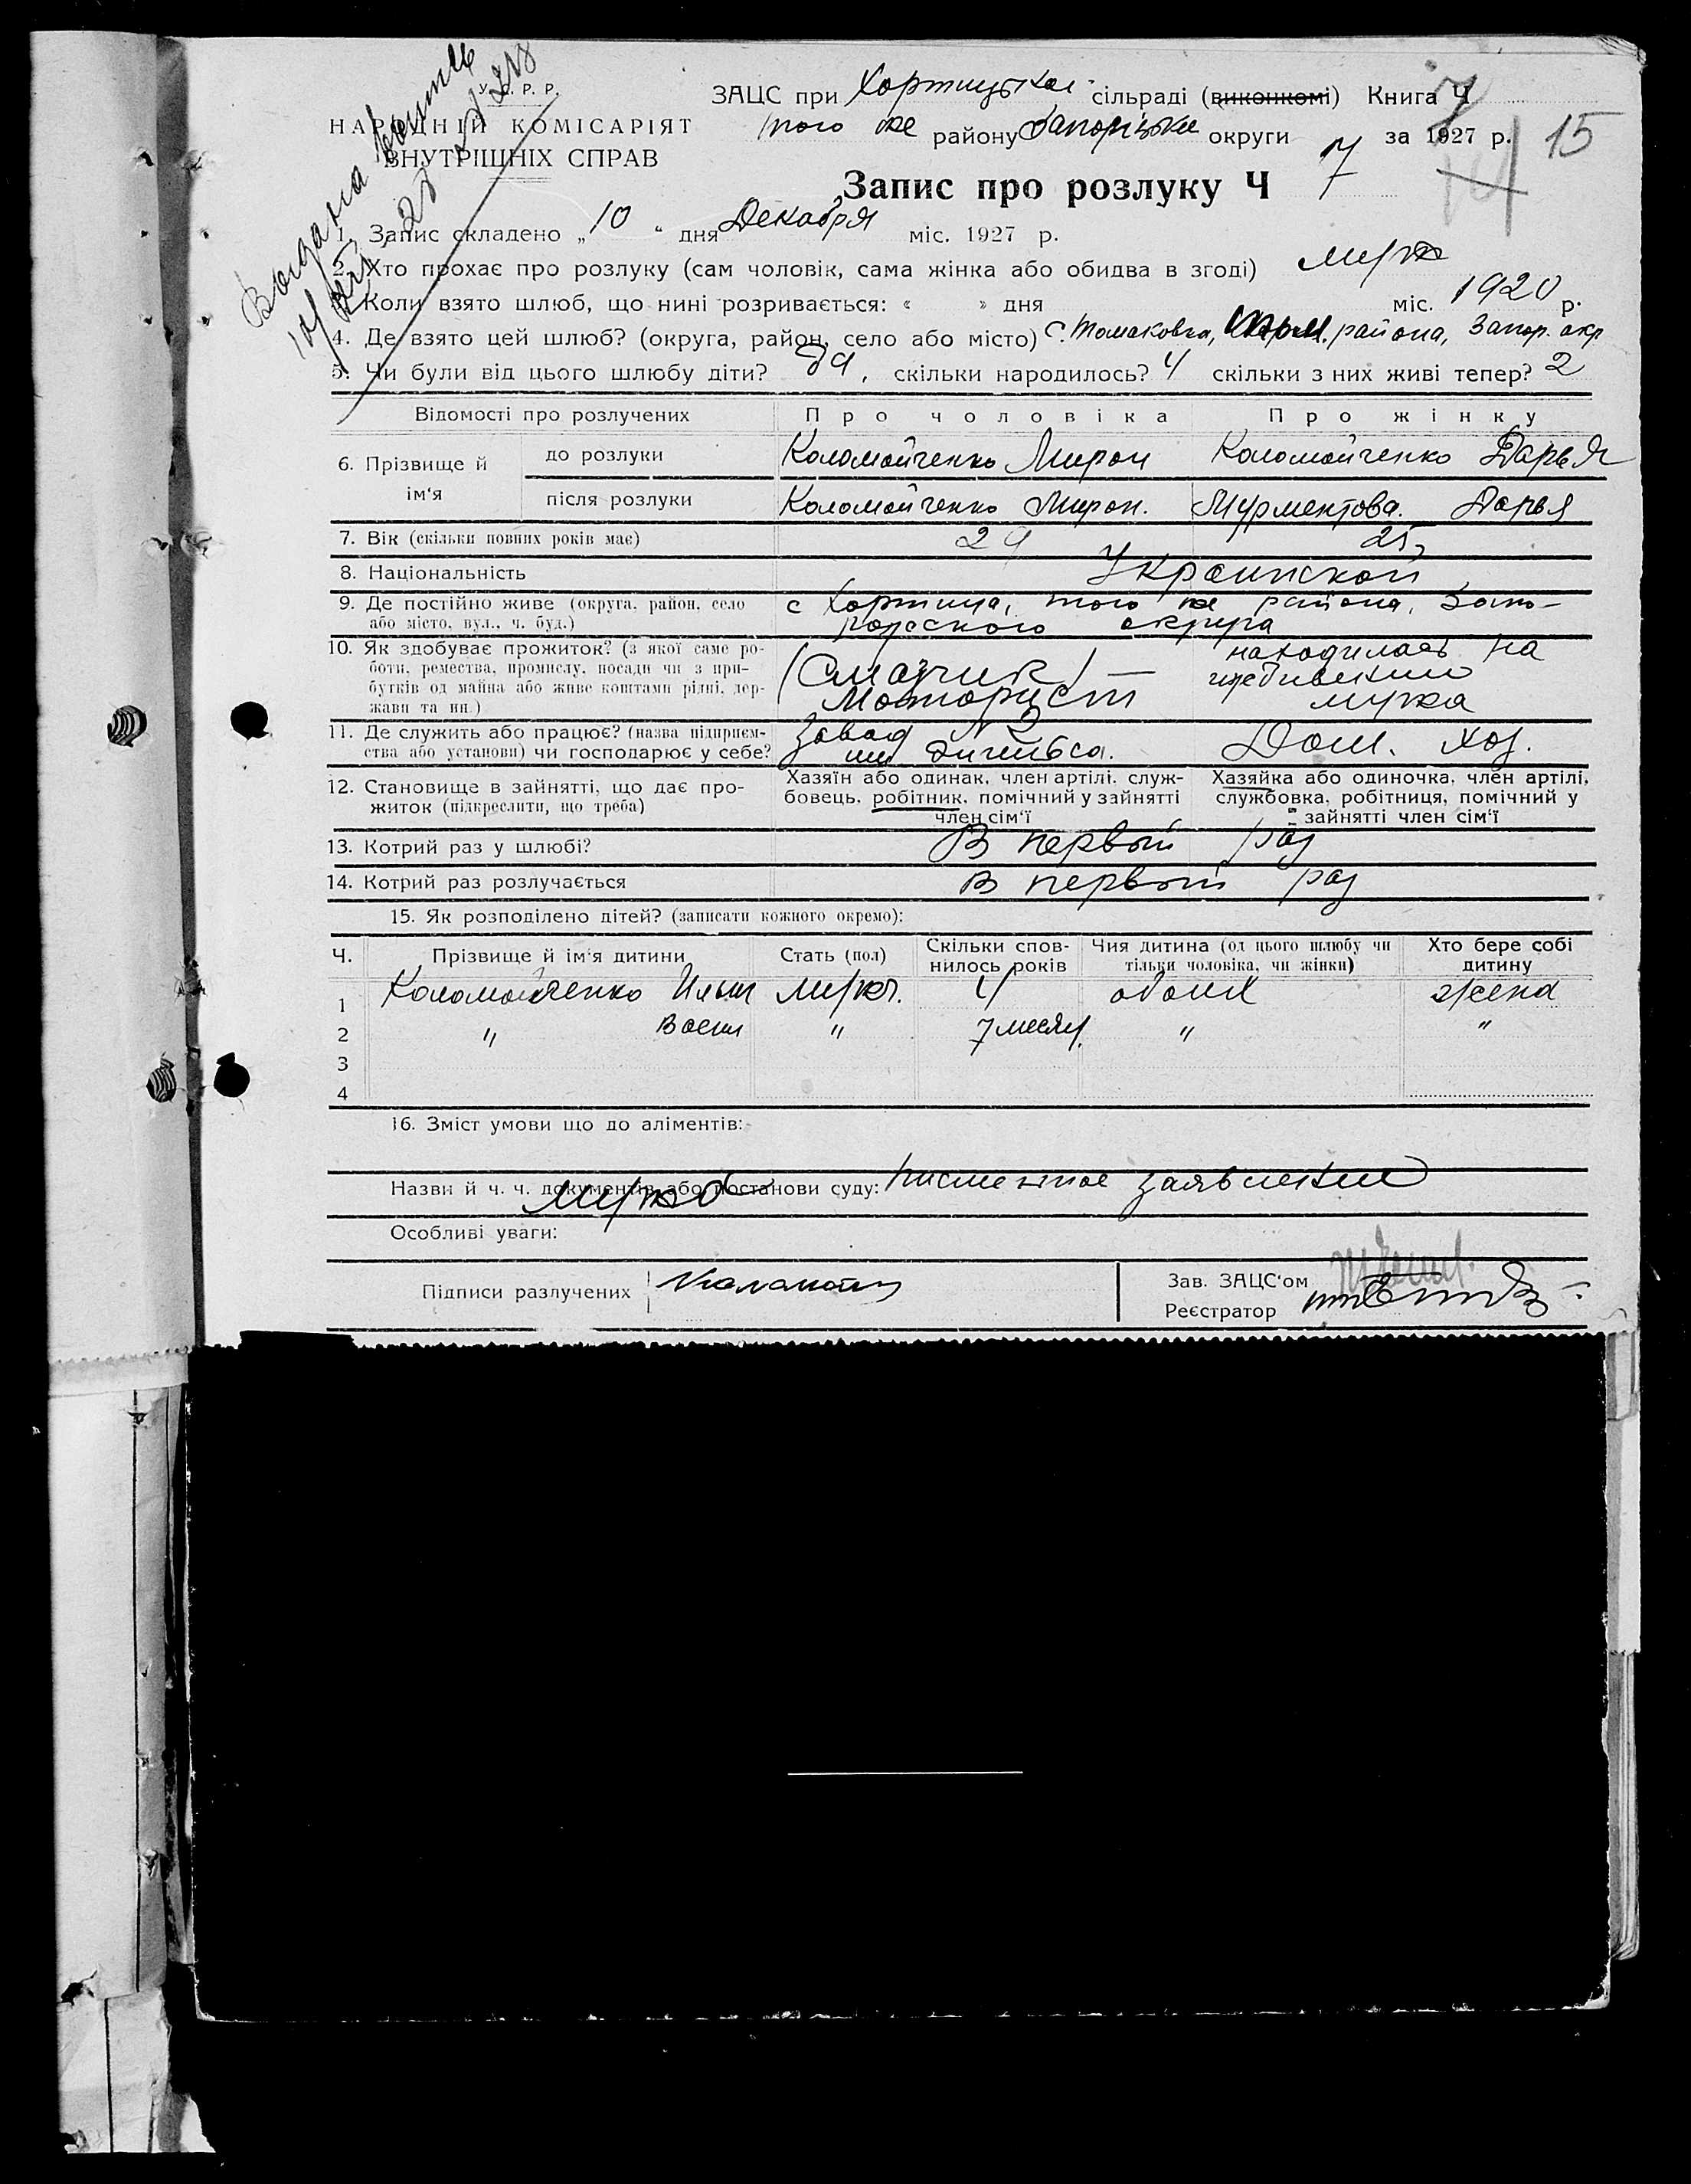 У. С. Р. Р.
НАРОДНІЙ КОМІСАРІЯТ
ВНУТРІШНІХ СПРАВ
ЗАЦС при Хортицькой сільраді (виконкомі) Книга Ч 7
того же району Запорізьке округи за 1927 р. 15
Запис про розлуку Ч 7
1. Запис складено „10“ дня Декабря міс. 1927 р.
2. Хто прохає про розлуку (сам чоловік, сама жінка або обидва в згоді) муж
3. Коли взято шлюб, що нині розривається: « » дня міс. 1920 р.
4. Де взято цей шлюб? (округа, район, село або місто) с. Томаковка, района, Запор. окр
5. Чи були від цього шлюбу діти? да, скільки народилось? 4 скільки з них живі тепер? 2
Відомості про розлучених Про чоловіка Про жінку
6. Прізвище й ім‘я до розлуки Коломойченко Мирон Коломойченко Дарья
після розлуки Коломойченко Мирон. Мурментова. Дарья
7. Вік (скільки повних років має) 29 25
8. Національність Украинской
9. Де постійно живе (округа, район, село с Хортица, того же района, Запо-
або місто, вул., ч. буд.) рожского округа
10. Як здобуває прожиток? (з якої саме ро- находилась на
боти, ремества, промислу, посади чи з при- (Смазчик) — иждивении
бутків од майна або живе коштами рідні, дер- Моторист мужа
жави та ин.)
11. Де служить або працює? (назва підприєм- Завод №2
ства або установи) чи господарює у себе? им Энгельса. Дом. хоз.
12. Становище в зайнятті, що дає про- Хазяїн або одинак, член артілі, служ- Хазяйка або одиночка, член артілі,
житок (підкреслити, що треба) бовець, робітник, помічний у зайнятті службовка, робітниця, помічний у
член сім‘ї зайнятті член сім‘ї
13. Котрий раз у шлюбі? В первый раз
14. Котрий раз розлучається В первый раз
15. Як розподілено дітей? (записати кожного окремо):
Ч. Прізвище й ім‘я дитини Стать (пол) Скільки спов- Чия дитина (од цього шлюбу чи Хто бере собі
нилось років тільки чоловіка, чи жінки) дитину
1 Коломойченко Илья мужч. 4 обоих жена
2 „ Васил „ 7 месяц. „ „
3
4
16. Зміст умови що до аліментів:
Назви й ч. ч. документів або постанови суду: писменное заявление
мужа
Особливі уваги:
Підписи разлучених
Зав. ЗАЦС‘ом
Реєстратор